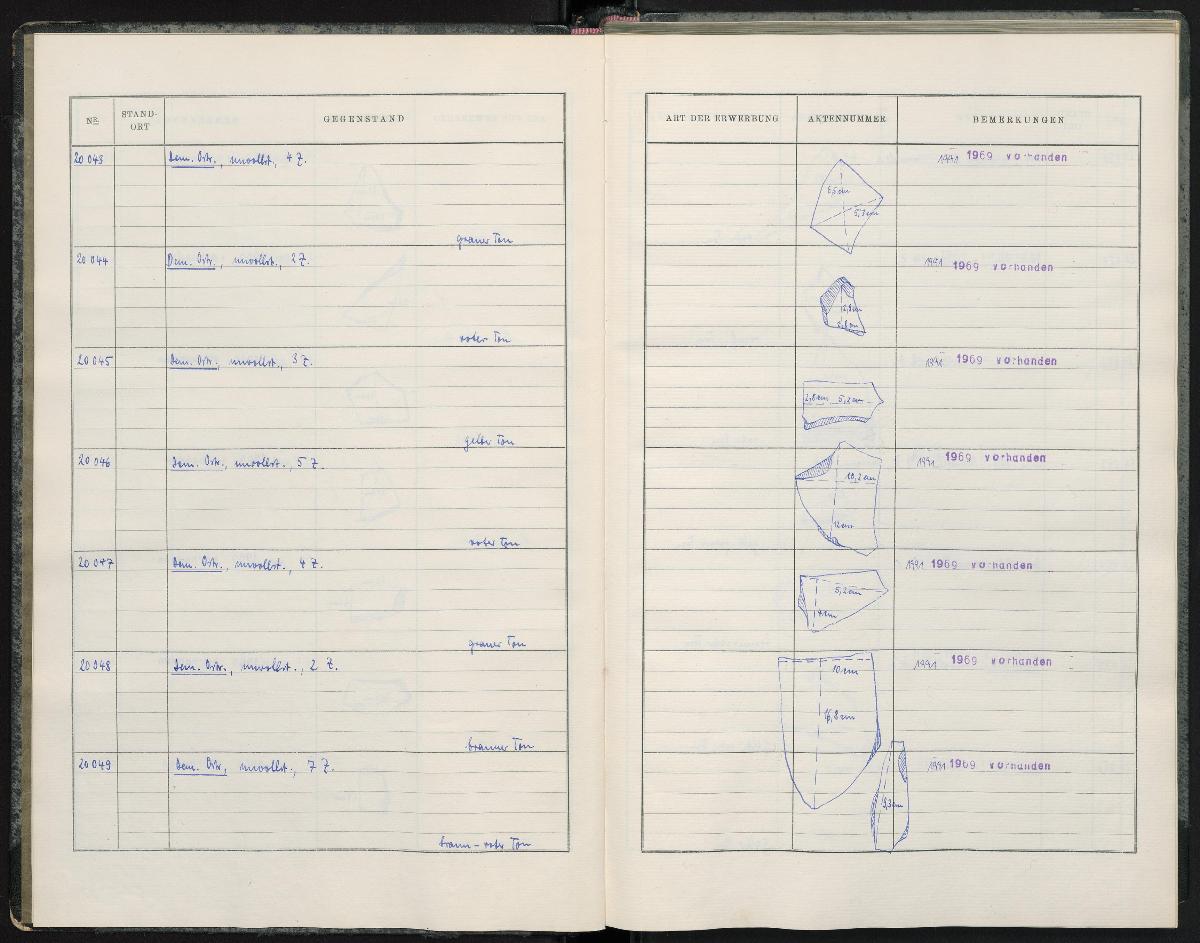 NR.
STAND-
ORT
GEGENSTAND
20 043
Dem. Ostr., unvollst., 4 Z.
grauer Ton
20 044
Dem. Ostr., unvollst., 2 Z.
roter Ton
20 045
Dem. Ostr., unvollst., 3 Z.
gelber Ton
20 046
Dem. Ostr., unvollst., 5 Z.
roter Ton
20 047
Dem. Ostr., unvollst., 4 Z.
grauer Ton
20 048
Dem. Ostr., unvollst., 2 Z.
brauner Ton
20 049
Dem. Ostr., unvollst., 7 Z.
braun-roter Ton
ART DER ERWERBUNG
AKTENNUMMER
BEMERKUNGEN
1991 1969 vorhanden
6,5 cm
5,3 cm
1991 1969 vorhanden
2,8 cm
1991 1969 vorhanden
2,8 cm 5,2 cm
1991 1969 vorhanden
10,2 cm
12 cm
1991 1969 vorhanden
5,2 cm
4 cm
1991 1969 vorhanden
10 cm
1991 1969 vorhanden
9,3 cm